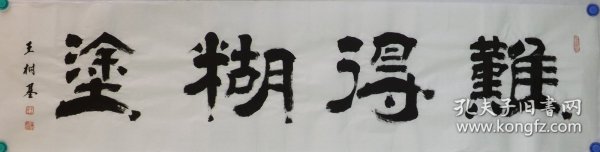 難得糊塗
王树基
孔夫子旧书网
www.kongfz.com